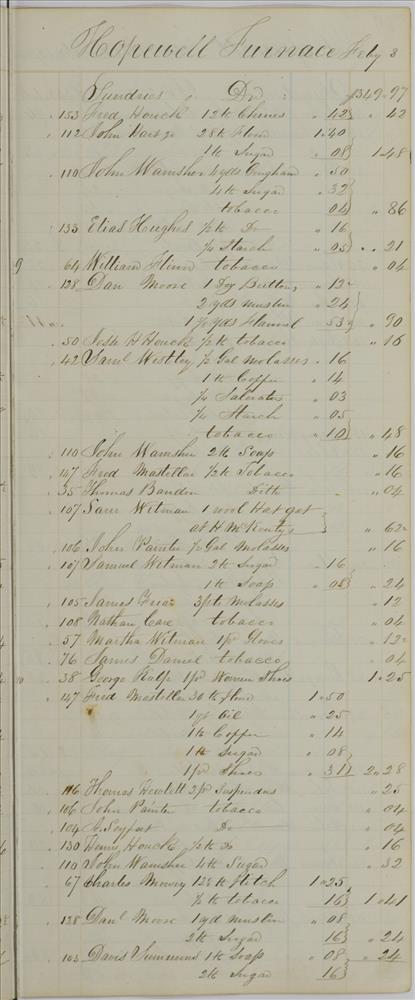 Hopewell Furnace Feby 8
Sundries Dr $349.97
153 Fred Houck 12 lb Cheues " 42 " 42
112 John Hart Jr 28 lb Flour 1.40
1 lb Sugar " 08 1.48
110 John Wamsher 4 yds Gingham " 50
4 lb Sugar " 32
tobacco 04 " 86
133 Elias Hughes 1/2 lb Do " 16
1/2 Starch " 05 " 21
64 William Flinn tobacco " 04
128 Dan Moore 1 Doz Buttons " 12
2 yds muslin " 24
yds flannel 53 " 90
50 Jesse H Houck 1/2 lb tobacco " 16
42 Saml Westley 1/2 Gal molasses " 16
1 lb Coffee " 14
1/4 Saleratus " 03
1/4 Starch " 05
tobacco " 10 " 48
110 John Wamsher 2 lb Soap " 16
147 Fred Masteller 1/2 lb Tobacco " 16
35 Thomas Ditto " 04
107 Saml Witman 1 wool Hat got
at H McKentys " 62
106 John Painter 1/2 Gal Molasses " 16
107 Samuel Witman 2 lb Sugar 16
1 lb Soap " 08 " 24
105 James 3 pts Molasses " 12
108 Nathan Care tobacco " 04
57 Martha Witman 1 pr Gloves " 12
76 James Daniel tobacco " 04
38 George 1 pr Women Shoes 1.25
147 Fred Masteller 30 lb flour 1.50
1 qt Oil " 25
1 lb Coffee " 14
1 lb Sugar " 08
1 pr Shoes " 31 2.28
116 Thomas Hewlett 2 pr Suspendus " 25
106 John Painter tobacco " 04
104 Seyfert Do " 04
130 Henry Houck 1/2 lb Do " 16
110 John Wamsher 4 lb Sugar " 32
67 Charles Mowry 12 1/2 lb flitch 1.25
1/2 lb tobacco 16 1.41
128 Danl Moore 1 yd muslin " 08
2 lb Sugar 16 " 24
103 Davis Simmons 1 lb Soap " 08 " 24
2 lb Sugar 16